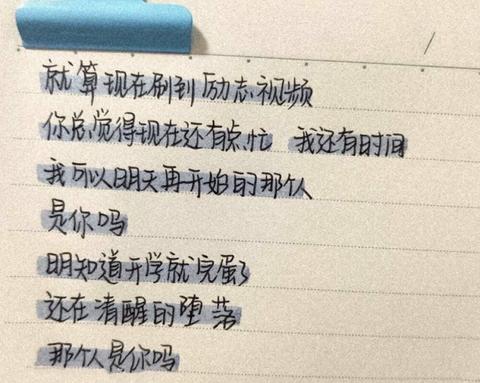 就算现在刷到励志视频
你总觉得现在还有点忙 我还有时间
我可以明天再开始的那个人
是你吗
明知道开学就完蛋
还在清醒的堕落
那个人是你吗